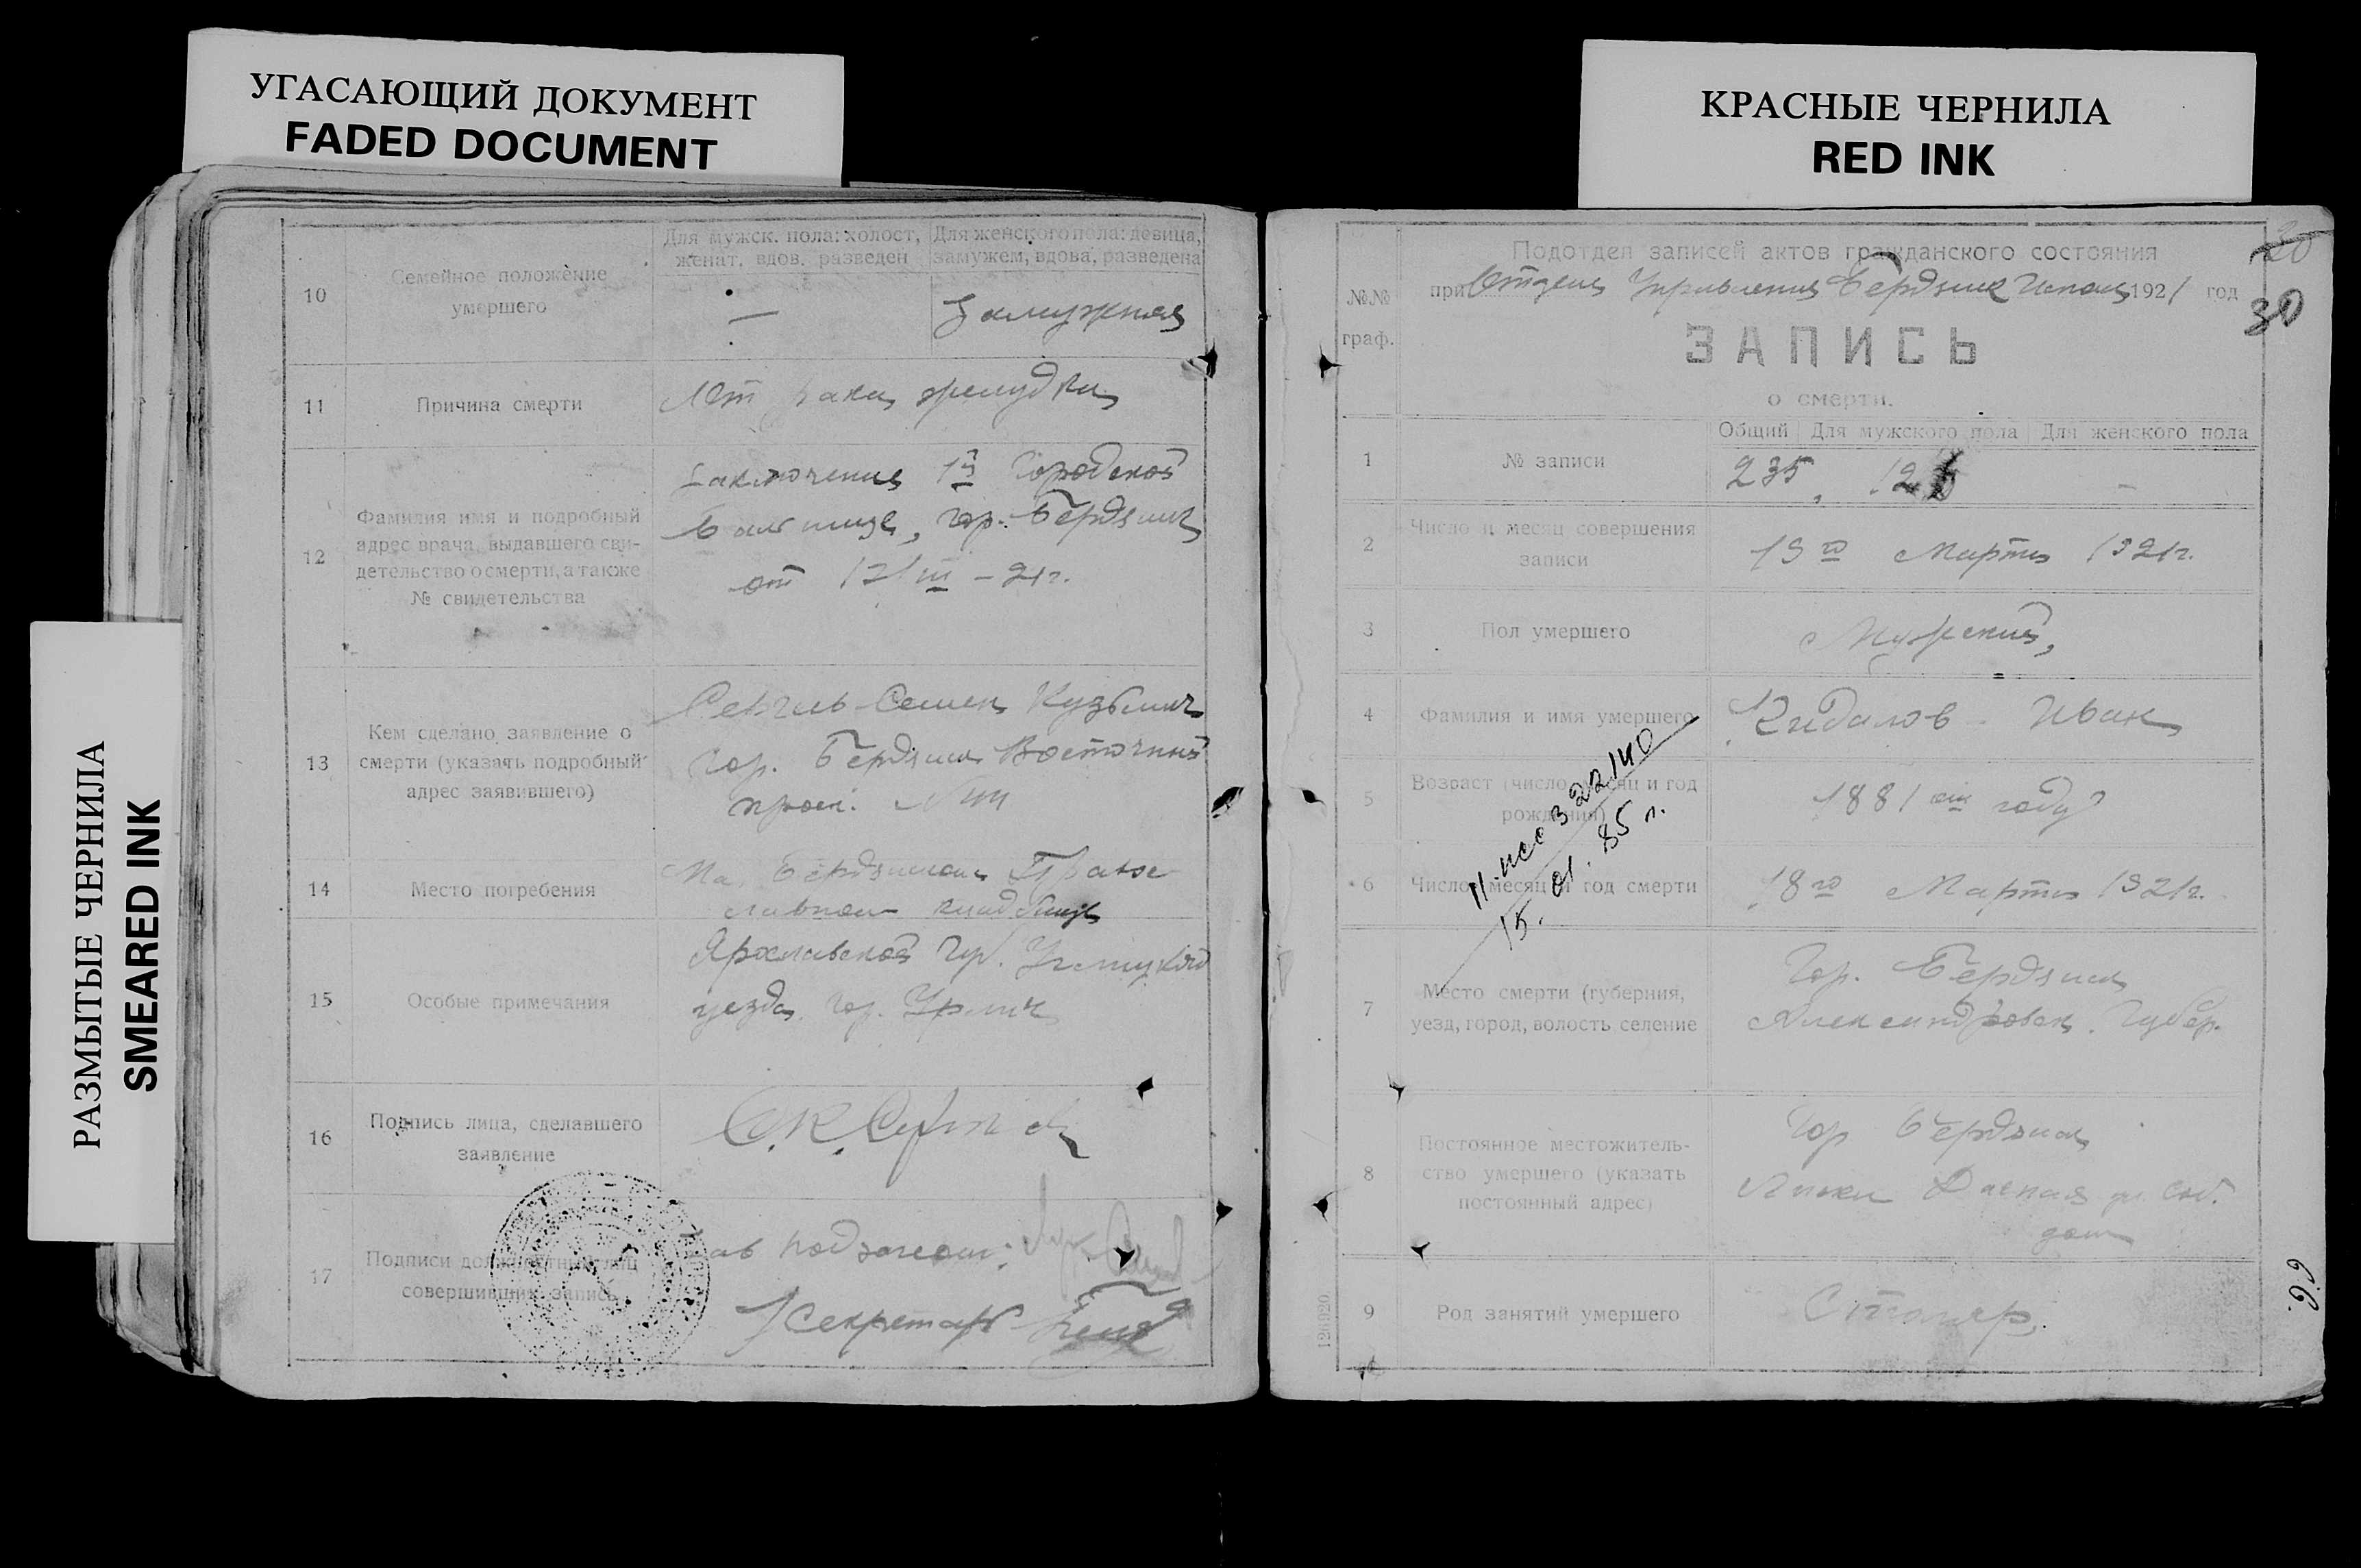 УГАСАЮЩИЙ ДОКУМЕНТ
FADED DOCUMENT
КРАСНЫЕ ЧЕРНИЛА
RED INK
РАЗМЫТЫЕ ЧЕРНИЛА
SMEARED INK
10
Семейное положение
умершего
Для мужск. пола: холост,
женат, вдов, разведен
Для женского пола: девица,
замужем, вдова, разведена
—
Замужняя
11
Причина смерти
От рака желудка
12
Фамилия имя и подробный
адрес врача, выдавшего сви-
детельство о смерти, а также
№ свидетельства
Заключение 1й Городской
Больницы, гор. Бердянск
от 12/III – 21г.
13
Кем сделано заявление о
смерти (указать подробный
адрес заявившего)
Семен Кузьмич
гор. Бердянск Восточный
просп. №
14
Место погребения
На Бердянском Право-
славном кладбище
15
Особые примечания
Ярославской Губ. Угличского
уезда гор. Углич
16
Подпись лица, сделавшего
заявление
С.К.
17
Подписи должностных лиц
совершивших запись
Зав подзагсом:
Секретарь
30
30
№№
граф.
Подотдел записей актов гражданского состояния
при Отделе Управления Бердянск Исполк 1921 год
ЗАПИСЬ
о смерти.
1
№ записи
Общий
Для мужского пола
Для женского пола
235
12
–
2
Число и месяц совершения
записи
19го Марта 1921г.
3
Пол умершего
Мужской,
4
Фамилия и имя умершего
Кидалов Иван
5
Возраст (число месяц и год
рождения)
1881 году
6
Число, месяц и год смерти
18го Марта 1921г.
322140
15. 01. 85 г.
7
Место смерти (губерния,
уезд, город, волость селение
Гор. Бердянск
Александровск. Губер.
8
Постоянное местожитель-
ство умершего (указать
постоянный адрес)
Гор Бердянск
Лиски Дачная ул. соб.
дом
9
Род занятий умершего
Столяр.
126920